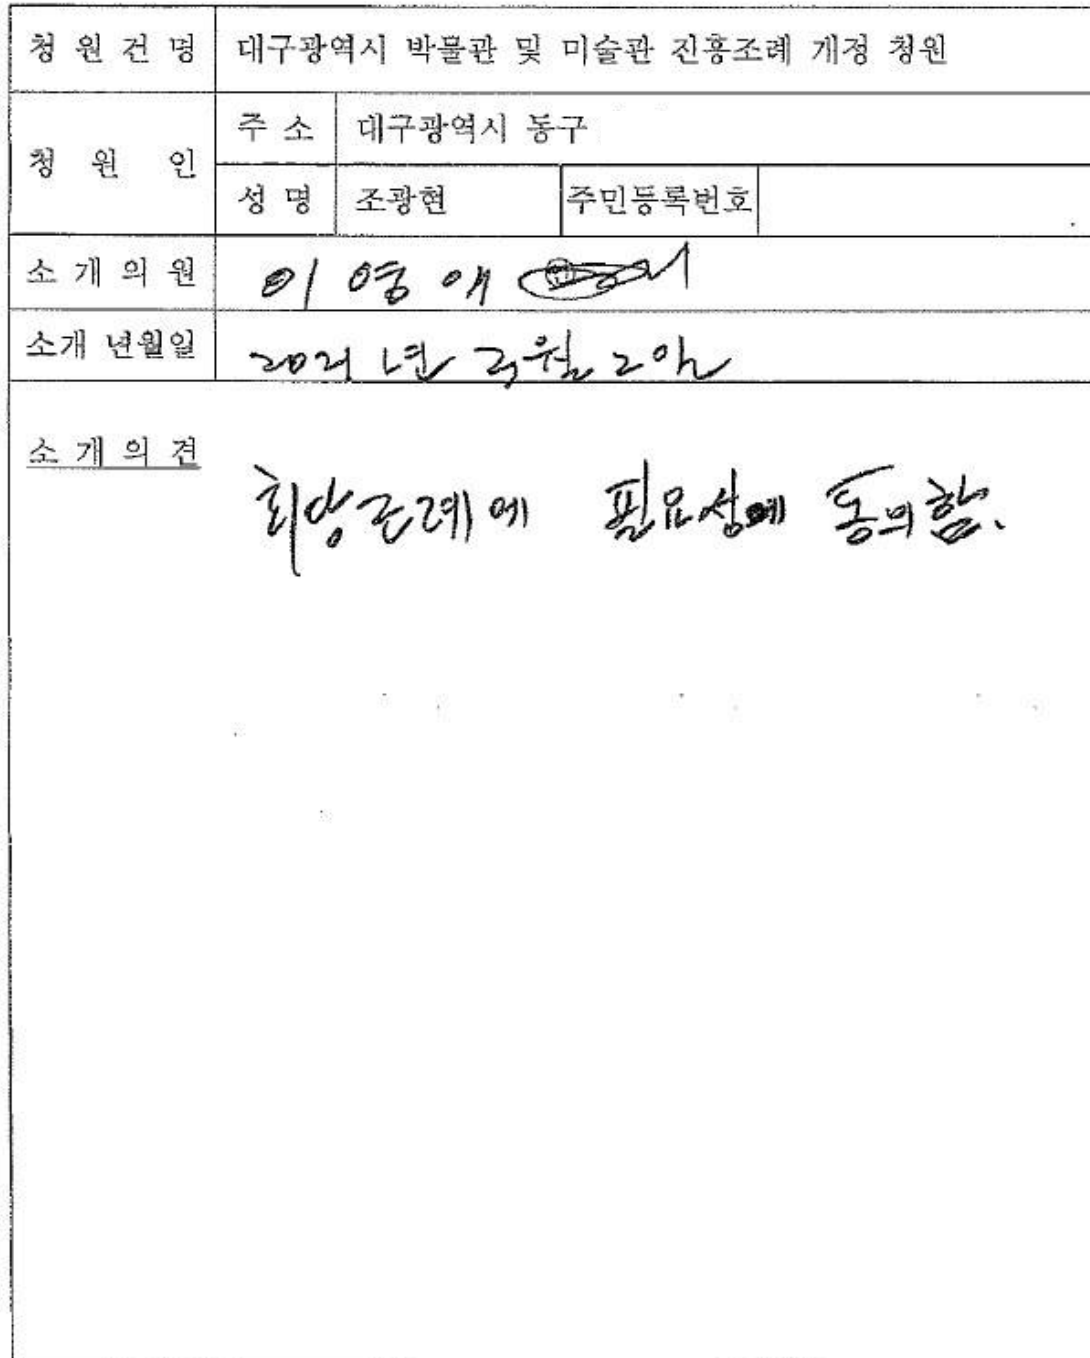 청 원 건 명 대구광역시 박물관 및 미술관 진흥조례 개정 청원
청 원 인 주 소 대구광역시 동구
성 명 조광현 주민등록번호
소 개 의 원 이 영 애
소개 년월일 2021 년 3월 2일
소 개 의 견
필요성에 동의함.